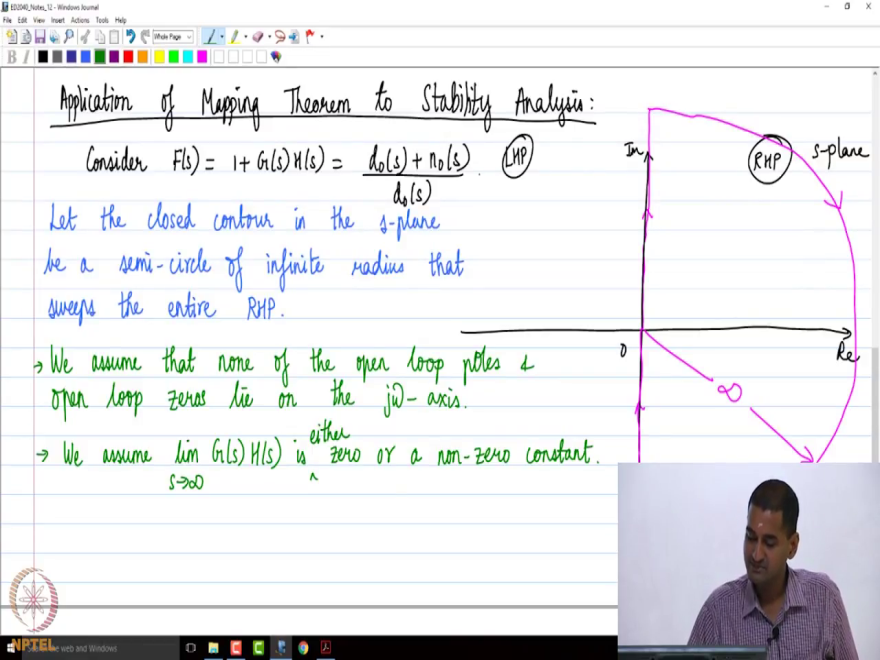 ED2040_Notes_12 - Windows Journal
File Edit View Insert Actions Tools Help
Whole Page
B I
Application of Mapping Theorem to Stability Analysis:
Consider F(s) = 1 + G(s) H(s) = d₀(s) + n₀(s) / d₀(s) . LHP
Let the closed contour in the s-plane
be a semi-circle of infinite radius that
sweeps the entire RHP.
→ We assume that none of the open loop poles &
open loop zeros lie on the jω-axis.
→ We assume lim s→∞ G(s) H(s) is either zero or a non-zero constant.
Im
RHP
s-plane
0
Re
∞
NPTEL
the web and Windows